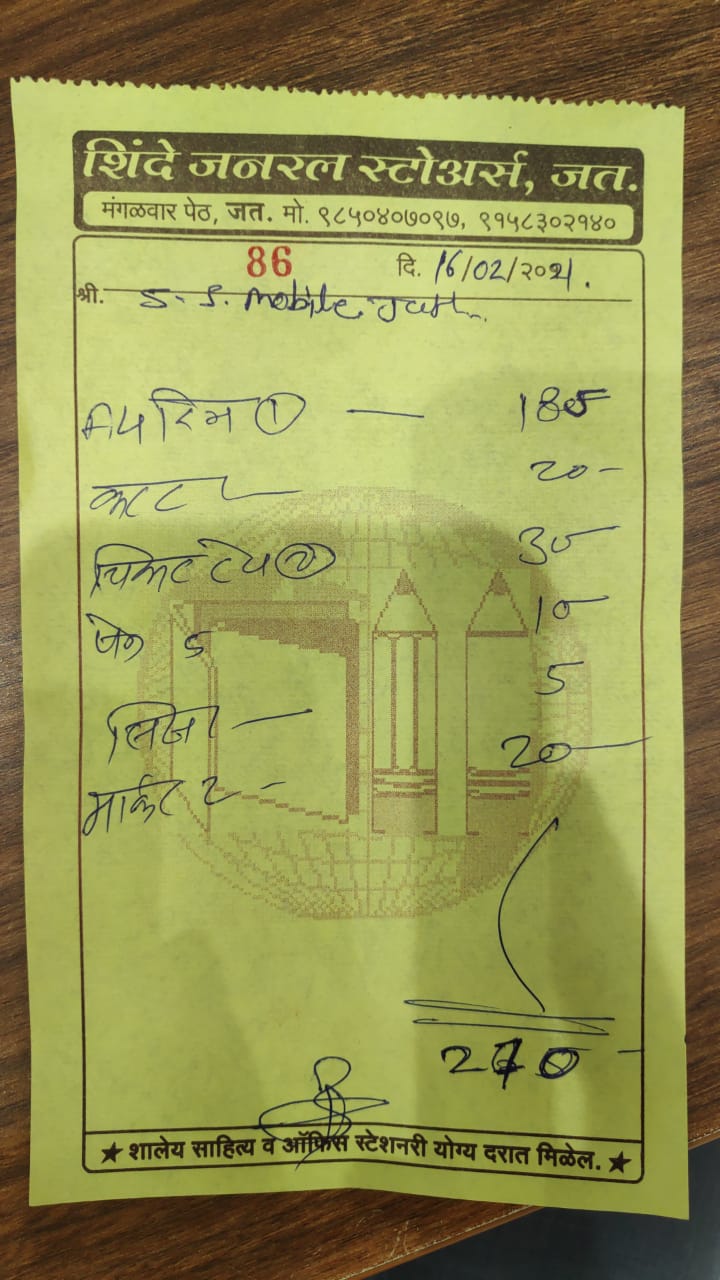 शिंदे जनरल स्टोअर्स, जत.
मंगळवार पेठ, जत. मो. ९८५०४०७०९७, ९१५८३०२१४०
86 दि. 16/02/२०२1.
श्री. S. S. Mobile. Jath.
रिम ① — 185
कटर — 20-
चिकट टेप ② 30
पेन 5 10
5
मार्कर 2 - 20
★ शालेय साहित्य व ऑफिस स्टेशनरी योग्य दरात मिळेल. ★